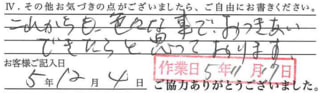 Ⅳ. その他お気づきの点がございましたら、ご自由にお書きください。
これからも、色々な事で、おつきあい
できたらと思っております
お客様ご記入日
5年12月4日
作業日5年11月17日
ご協力ありがとうございました。